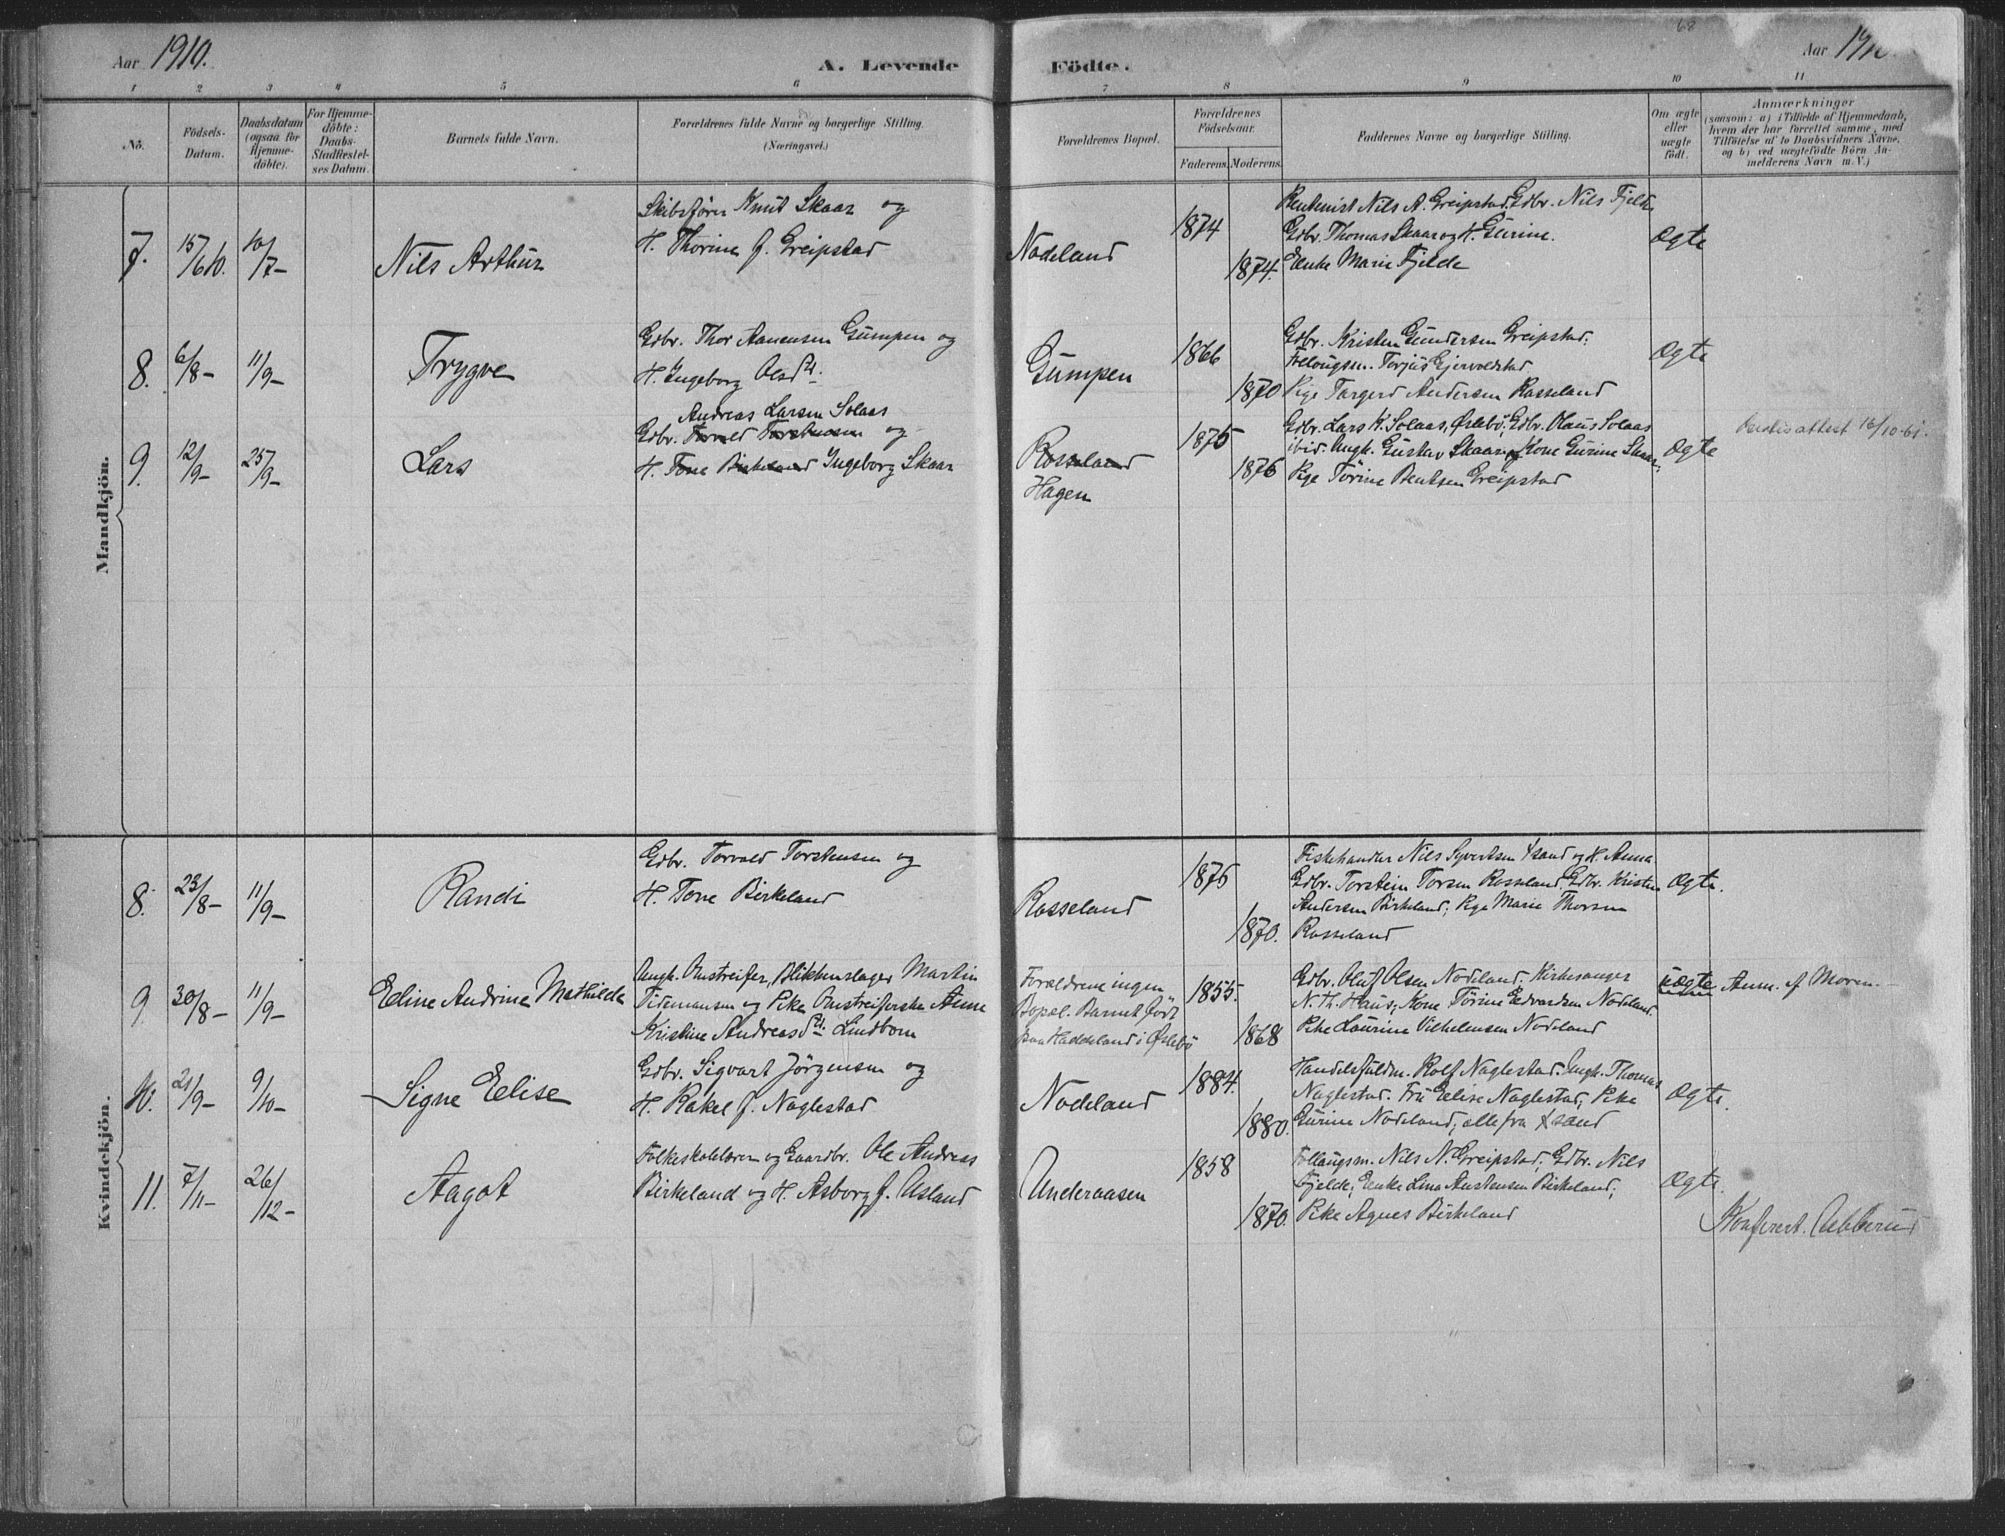 68
Aar 1910.
A. Levende
Födte.
Aar 1910
1 2 3 4 5 6 7 8 9 10 11
No.
Födsels-Datum.
Daabsdatum (ogsaa for Hjemme-döbte).
For Hjemme-döbte: Daabs-Stadfæstel-ses Datum.
Barnets fulde Navn.
Forældrenes fulde Navne og borgerlige Stilling. (Næringsvei.)
Forældrenes Bopæl.
Forældrenes Födselsaar.
Faderens. Moderens.
Faddernes Navne og borgerlige Stilling.
Om ægte eller uægte født.
Anmærkninger
(saasom: a) i Tilfælde af Hjemmedaab,
hvem der har forrettet samme, med
Tilföielse af to Daabsvidners Navne,
og b) ved uægtefödte Börn An-
melderens Navn m. V.)
Mandkjön.
7. 15/6 10. 10/7- Nils Arthur
Skibsfører Knut Skaar og
H. Thorine f. Greipstad
Nodeland
1874
1874.
Rentenist Nils A. Greipstad, Gdbr. Nils Fjelde
Gdbr. Thomas Skaar og H. Gurine.
Enke Marie Fjelde
Ægte
8. 6/8- 11/9- Trygve
Gdbr. Thor Aanensen Gumpen og
H. Ingeborg Olsdt.
Gumpen
1866
1870
Gdbr. Kristen Gundersen Greipstad.
Torjus Gjervoldstad
Pige Targerd Andersen Rosseland
Ægte
9. 12/9- 25/9- Lars
Andreas Larsen Solaas
Gdbr. Torvald Torstensen og
H. Tone Birkeland Ingeborg Skaar
Rosseland
Hagen
1875
1876
Gdbr. Lars K. Solaas, Øslebö, Gdbr. Olaus Solaas
ibid. Ungk. Gustav Skaar, Kone Gurine Skaar,
Pige Torine Bentsen Greipstad
Ægte
attest 16/10-61.
Kvindekjön.
8. 23/8- 11/9- Randi
Gdbr. Torvald Torstensen og
H. Tone Birkeland
Rosseland
1876
1870.
Fiskehandler Nils Syvertsen Xsand og H. Anna
Gdbr. Torstein Torsen Rosseland, Gdbr. Kristen
Andersen Birkeland; Pige Marie Thorsen
Rosseland
Ægte.
9 30/8- 11/9- Eline Andrine Mathilde
Ungk. Omstreifer, Blikkenslager Martin
Tidemansen og Pike Omstreiferske Anne
Kristine Andreasdt. Lindbom
Forældrene ingen
Bopæl. Barnet født
paa Haddeland i Øslebö
1855.
1868
Gdbr. Olaf Olsen Nodeland. Kirkesanger
N. Th. Haus, Kone Törine Edvardsen Nodeland.
Pike Laurine Vilhelmsen Nodeland
Uægte
Anm. af Moren.
10. 21/9- 9/10- Signe Elise
Gdbr. Sigvart Jørgensen og
H. Rakel f. Naglestad
Nodeland
1884.
1880.
Handelsfuldm. Rolf Naglestad. Ungk. Thomas
Naglestad. Fru Elise Naglestad, Pike
Gurine Nodeland; alle fra Xsand
Ægte.
11. 7/11- 26/12- Aagot
Folkeskolelærer og Gaardbr. Ole Andreas
Birkeland og H. Asborg f. Usland
Underaasen
1858
1870.
Nils N. Greipstad, Gdbr. Nils
Fjelde; Enke Lina Austensen Birkeland;
Pike Agnes Birkeland
Ægte.
Konferert. Ubberud